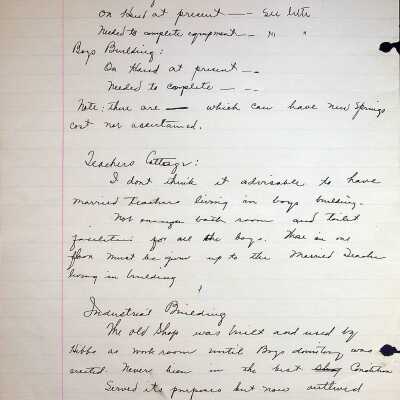 On Hand at present — — See
Needed to complete equipment — "
Boys Building:
On Hand at present — —
Needed to complete — — —
Note: there are — which can have new springs
cost not ascertained.
Teachers Cottage:
I dont think it advisable to have
married teachers living in boys building.
Not enough bath room and toilet
facilities for all the boys. These in one
floor must be given up to the Married Teacher
living in building
Industrial Building
The old Shop was built and used by
Hibbs as work room until Boys dormitory was
erected. Never been in the best Condition
Served its purposes but now outlived